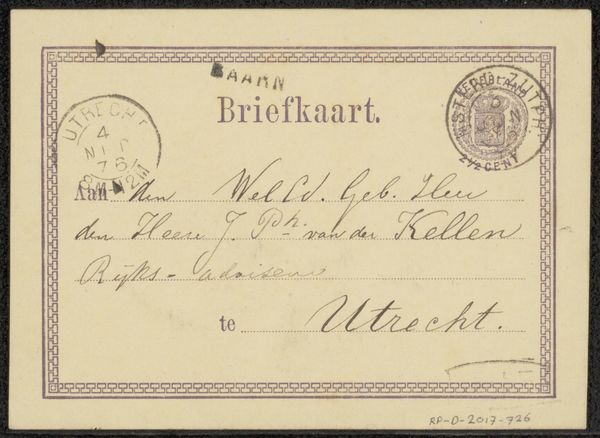 BAARN
Briefkaart.
UTRECHT
4
76
8M-12M
2½ CENT
Aan den Wel Ed. Geb. Heer
den Heere J. Ph. van der Kellen
Rijks-adviseur
te Utrecht.
RP-D-2017-726